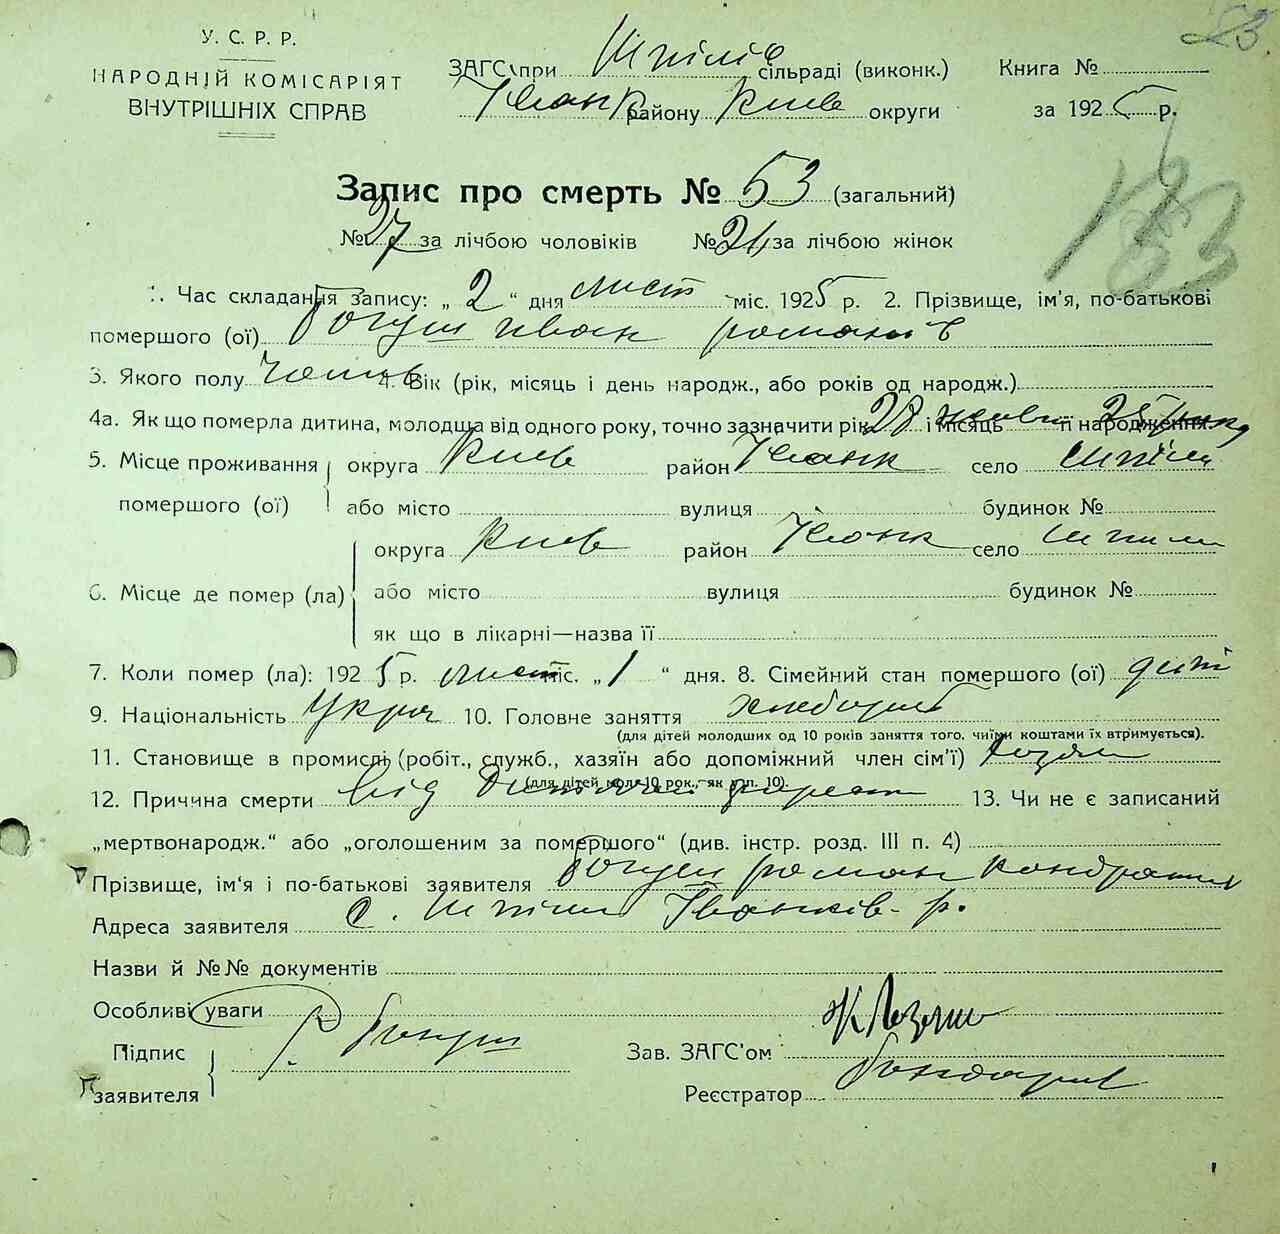 53.
У. С. Р. Р.
НАРОДНІЙ КОМІСАРІЯТ
ВНУТРІШНІХ СПРАВ
ЗАГС при Шпилів сільраді (виконк.) Книга №
Іванк району Київ округи за 1925 р.
183
Запис про смерть № 53 (загальний)
№ 27 за лічбою чоловіків № 26 за лічбою жінок
1. Час складання запису: „ 2 “ дня лист міс. 1925 р. 2. Прізвище, ім'я, по-батькові
помершого (ої) Богуш Иван Романів
3. Якого полу Чолов 4. Вік (рік, місяць і день народж., або років од народж.)
4а. Як що померла дитина, молодща від одного року, точно зазначити рік і місяць її народження 28 жовт 25 року
5. Місце проживання помершого (ої) округа Київ район Іванк село Шпили
або місто вулиця будинок №
6. Місце де помер (ла) округа Київ район Іванк село Шпили
або місто вулиця будинок №
як що в лікарні—назва її
7. Коли помер (ла): 1925 р. лист міс. „ 1 “ дня. 8. Сімейний стан помершого (ої) диті
9. Національність Укра 10. Головне заняття хлебороб
(для дітей молодших од 10 років заняття того, чиїми коштами їх втримується).
11. Становище в промислі (робіт., служб., хазяїн або допоміжний член сім'ї) хозяін
(для дітей мол. 10 рок., як у п. 10).
12. Причина смерти від 13. Чи не є записаний
„мертвонародж.“ або „оголошеним за помершого“ (див. інстр. розд. III п. 4)
Прізвище, ім'я і по-батькові заявителя Богуш Роман Кондратів
Адреса заявителя с. Шпили Іванків-р.
Назви й №№ документів
Особливі уваги
Підпис заявителя Р. Богуш
Зав. ЗАГС'ом
Реєстратор